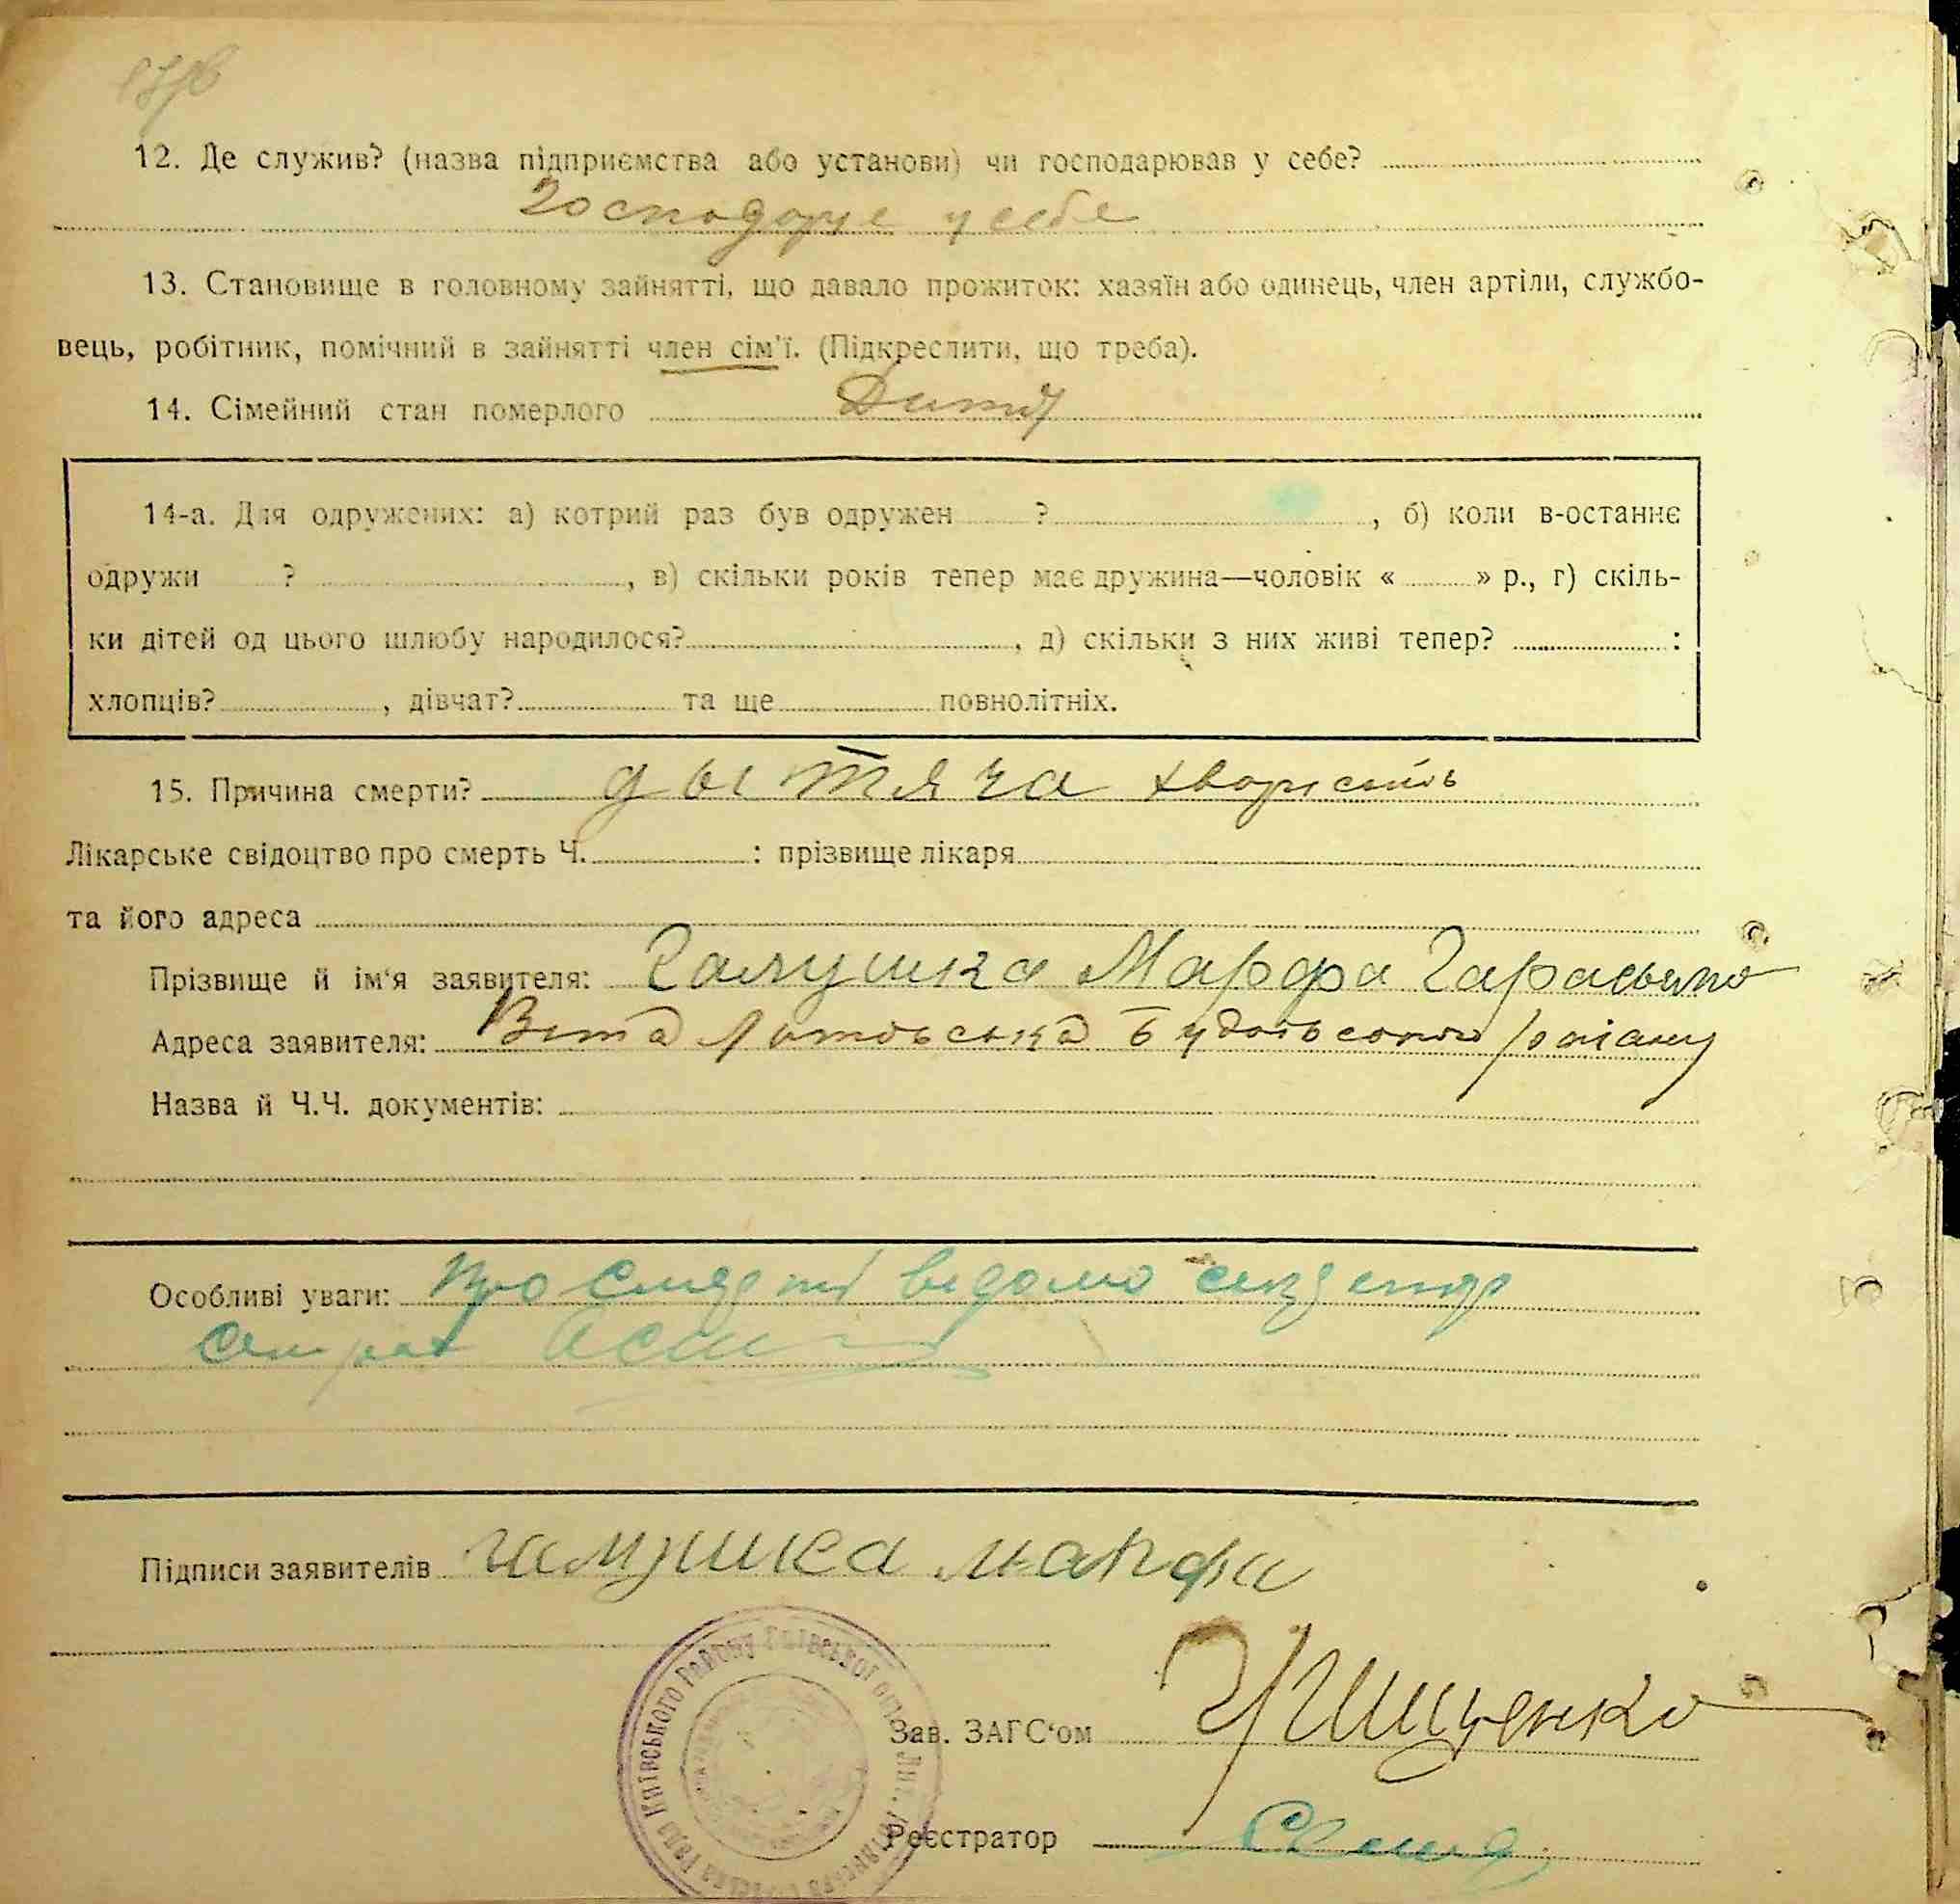 12. Де служив? (назва підприємства або установи) чи господарював у себе?
Господарує у себе
13. Становище в головному зайнятті, що давало прожиток: хазяїн або одинець, член артіли, службо-
вець, робітник, помічний в зайнятті член сім'ї. (Підкреслити, що треба).
14. Сімейний стан померлого Дитя
14-а. Для одружених: а) котрий раз був одружен ? , б) коли в-останнє
одружи ? , в) скільки років тепер має дружина—чоловік « » р., г) скіль-
ки дітей од цього шлюбу народилося? , д) скільки з них живі тепер? :
хлопців? , дівчат? та ще повнолітніх.
15. Причина смерти? дытяча хворість
Лікарське свідоцтво про смерть Ч. : прізвище лікаря
та його адреса
Прізвище й ім'я заявителя: Галушка Марфа
Адреса заявителя: Вита Литовська району
Назва й Ч.Ч. документів:
Особливі уваги: Про смерть відомо
Підписи заявителів галушка марфа
Київського району Київської
Зав. ЗАГС'ом
Реєстратор